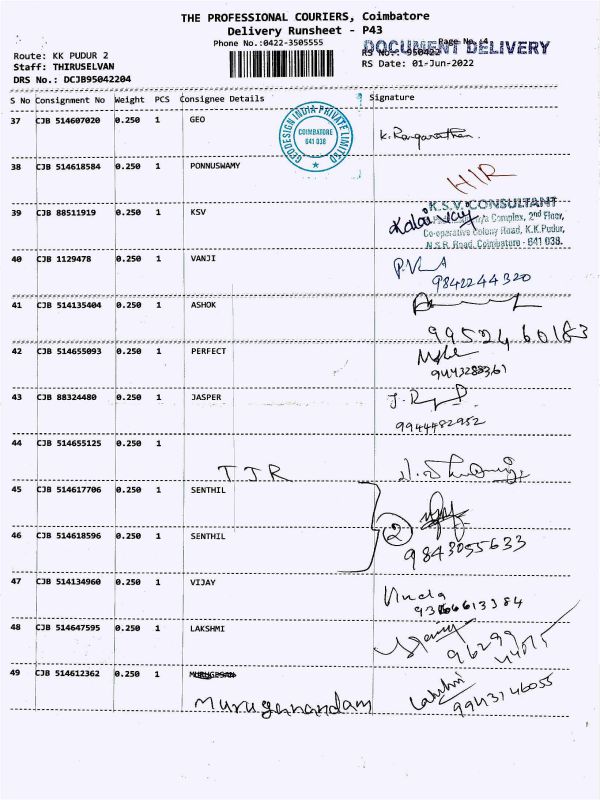 THE PROFESSIONAL COURIERS, Coimbatore
Delivery Runsheet - P43
Phone No.:0422-3505555
Page No.:4
DOCUMENT DELIVERY
Route: KK PUDUR 2
RS No.: 950422
Staff: THIRUSELVAN
RS Date: 01-Jun-2022
DRS No.: DCJB95042204
S No Consignment No Weight PCS Consignee Details Signature
37 CJB 514607020 0.250 1 GEO
GEODESIGN INDIA PRIVATE LIMITED
COIMBATORE
641 038
K. Ranganathan.
38 CJB 514618584 0.250 1 PONNUSWAMY
H/R
K.S.V. CONSULTANT
39 CJB 88511919 0.250 1 KSV
Complex, 2nd Floor,
Co-operative Colony Road, K.K.Pudur,
N.S.R. Road, Coimbatore - 641 038.
40 CJB 1129478 0.250 1 VANJI
9842244320
41 CJB 514135404 0.250 1 ASHOK
9952460183
42 CJB 514655093 0.250 1 PERFECT
9443288361
43 CJB 88324480 0.250 1 JASPER
9944482952
44 CJB 514655125 0.250 1
TJR
45 CJB 514617706 0.250 1 SENTHIL
2
46 CJB 514618596 0.250 1 SENTHIL
9843055633
47 CJB 514134960 0.250 1 VIJAY
48 CJB 514647595 0.250 1 LAKSHMI
96299
49 CJB 514612362 0.250 1 MURUGESAN
Lakshmi
9943146055
Muruganandam